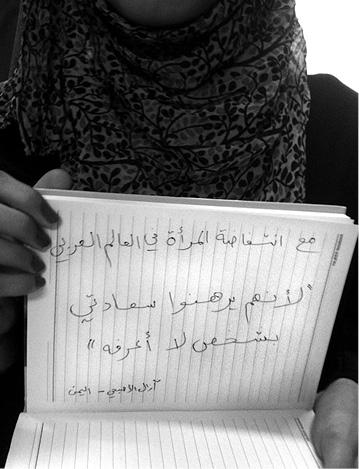 مع انتفاضة المرأة في العالم العربي
"لأنهم يرهنوا سعادتي
بشخص لا أعرفه"
- اليمن